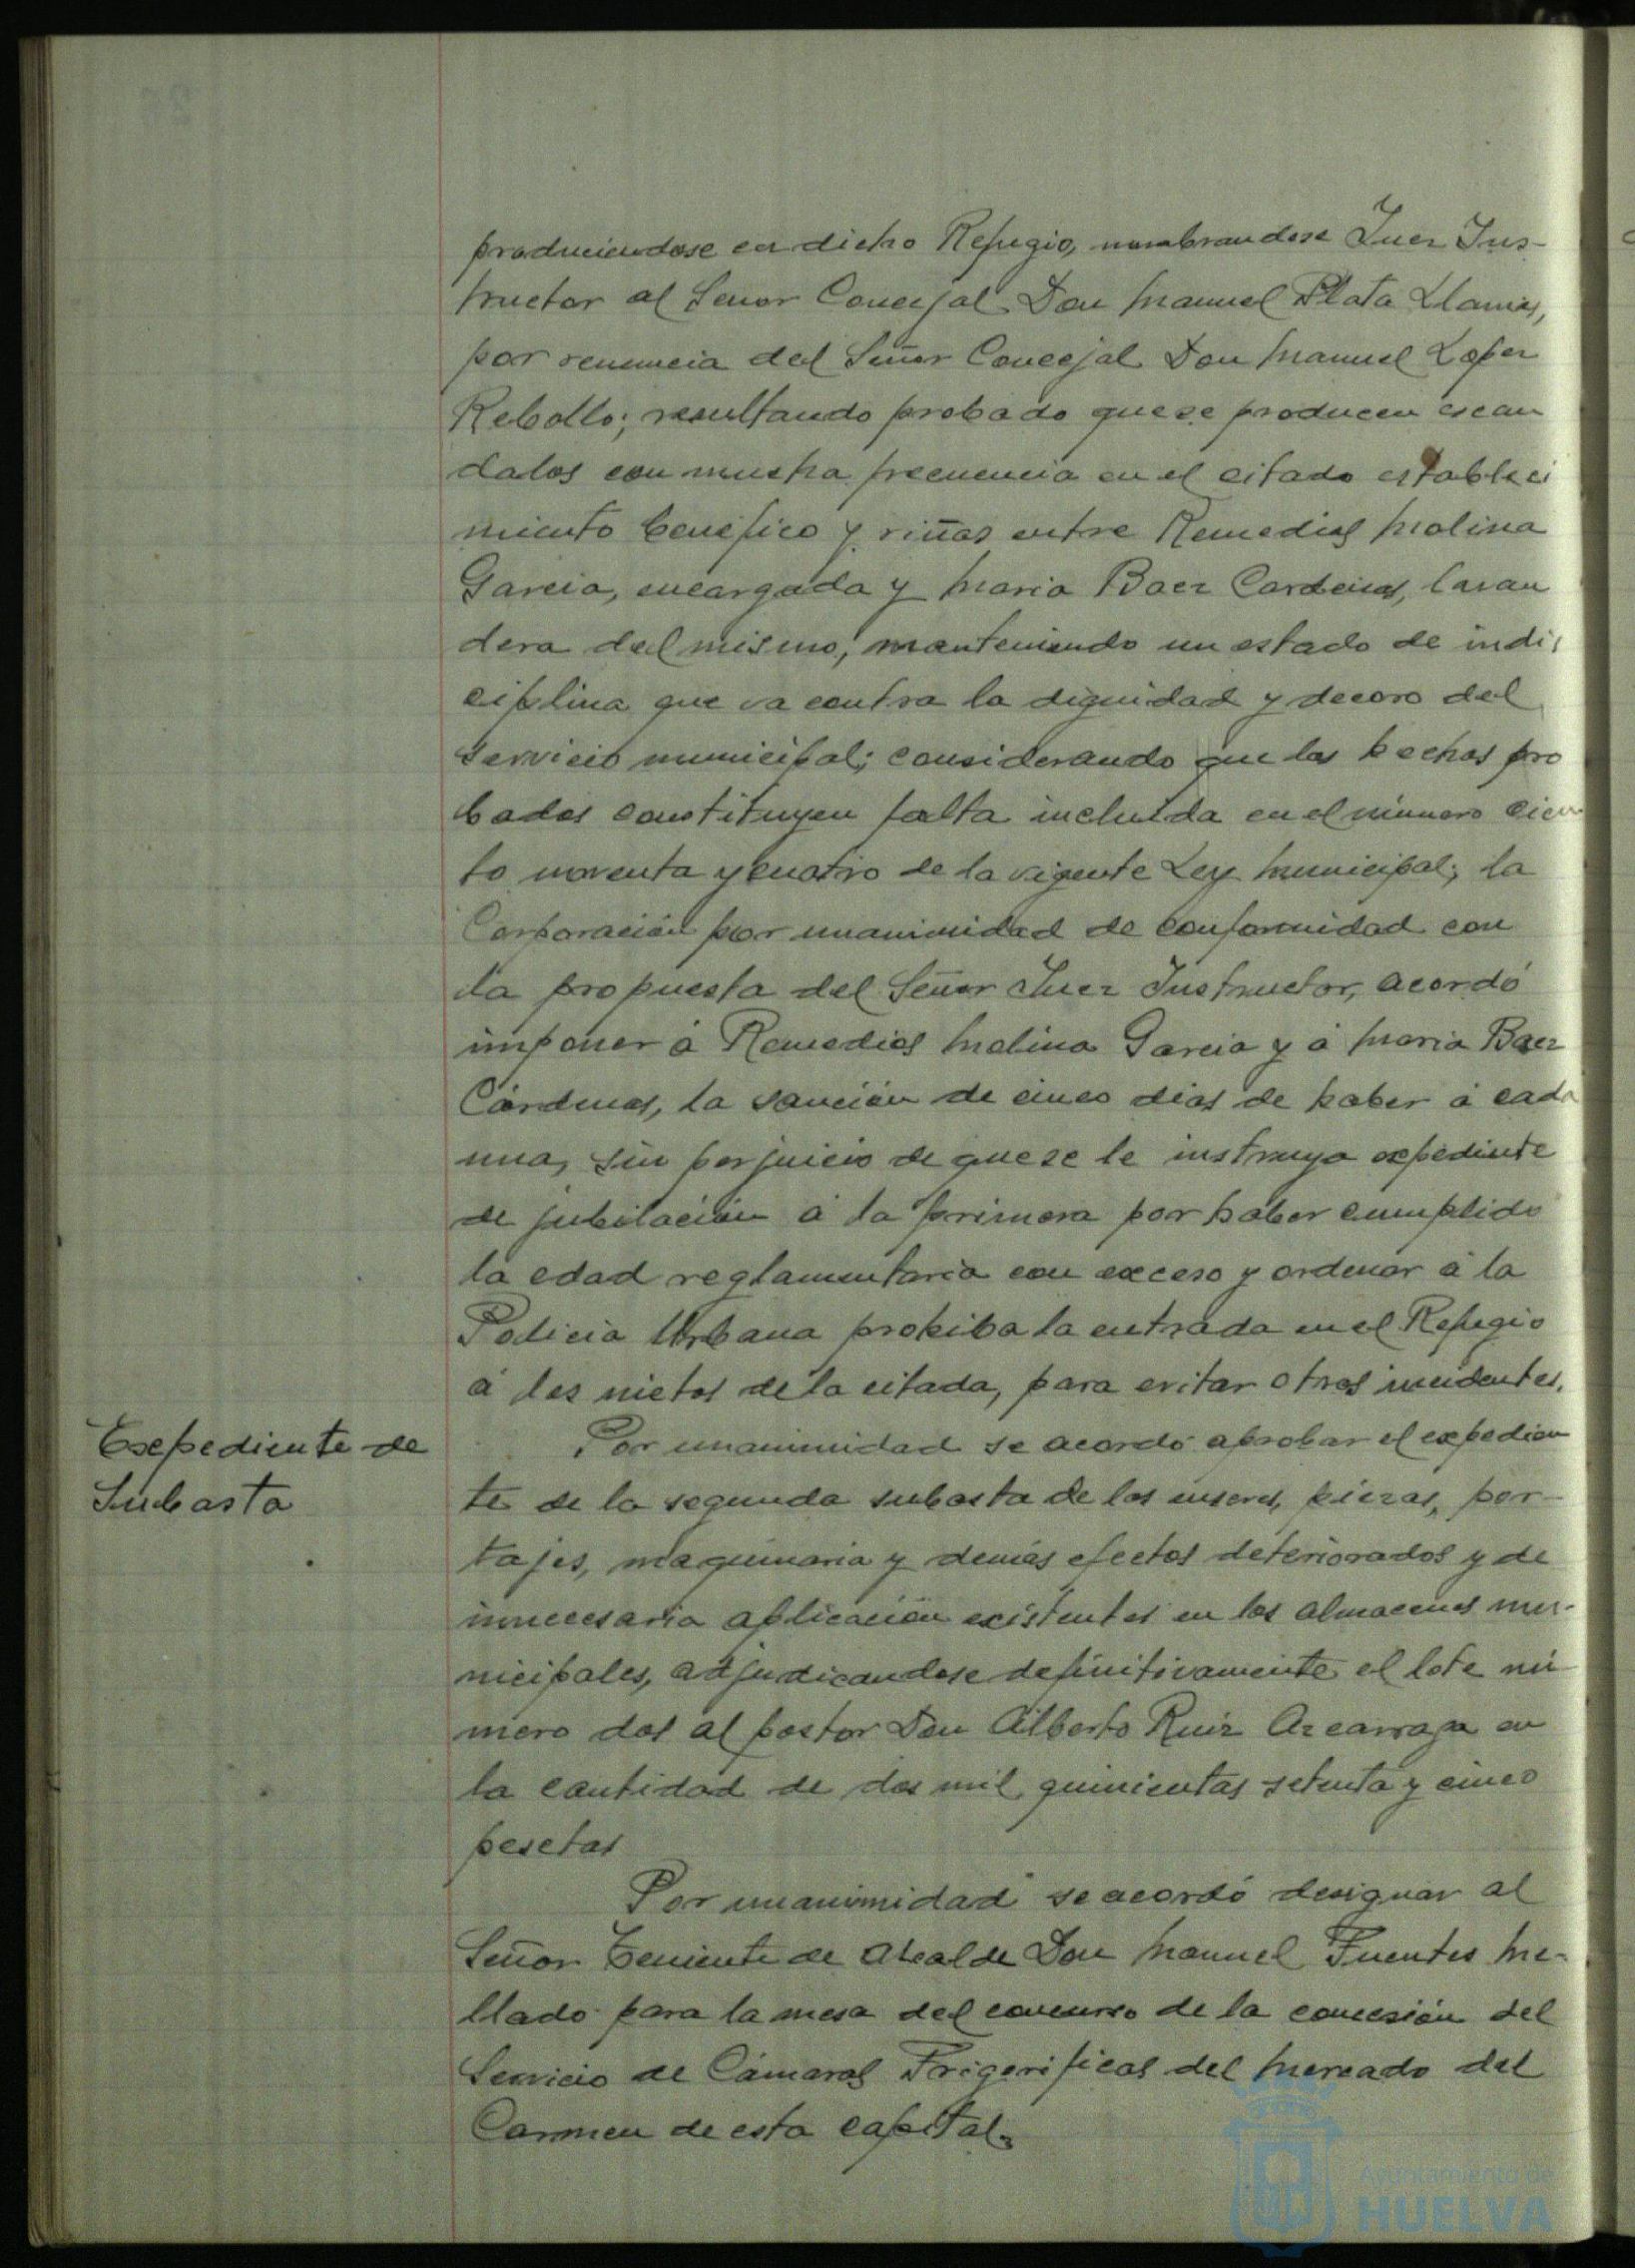 produciendose en dicho Refugio, nombrandose Juez Ins-
tructor al Señor Concejal Don Manuel Plata Llanes,
por renuncia del Señor Concejal Don Manuel Lopez
Rebollo; resultando probado que se producen escan
dalos con mucha frecuencia en el citado estableci
miento benéfico y riñas entre Remedios Molina
Garcia, encargada y Maria Baez Cardenas, lavan
dera del mismo, manteniendo un estado de indis
ciplina que va contra la dignidad y decoro del
servicio municipal; considerando que los hechos pro
bados constituyen falta incluida en el número cien
to noventa y cuatro de la vigente Ley Municipal; la
Corporación por unanimidad de conformidad con
la propuesta del Señor Juez Instructor, acordó
imponer á Remedios Molina Garcia y á Maria Baez
Cárdenas, la sanción de cinco dias de haber á cada
una, sin perjuicio de que se le instruya expediente
de jubilación á la primera por haber cumplido
la edad reglamentaria con exceso y ordenar á la
Policia Urbana prohiba la entrada en el Refugio
á los nietos de la citada, para evitar otros incidentes.
Expediente de
Subasta
Por unanimidad se acordó aprobar el expedien
te de la segunda subasta de los enseres, piezas, por-
tajes, maquinaria y demás efectos deteriorados y de
innecesaria aplicación existentes en los almacenes mu-
nicipales, adjudicandose definitivamente el lote nú
mero dos al postor Don Alberto Ruiz Azcarraga en
la cantidad de dos mil quinientas setenta y cinco
pesetas
Por unanimidad se acordó designar al
Señor Teniente de Alcalde Don Manuel Fuentes Me-
llado para la mesa del concurso de la concesión del
Servicio de Cámaras Frigorificas del Mercado del
Carmen de esta capital.
Ayuntamiento de
HUELVA